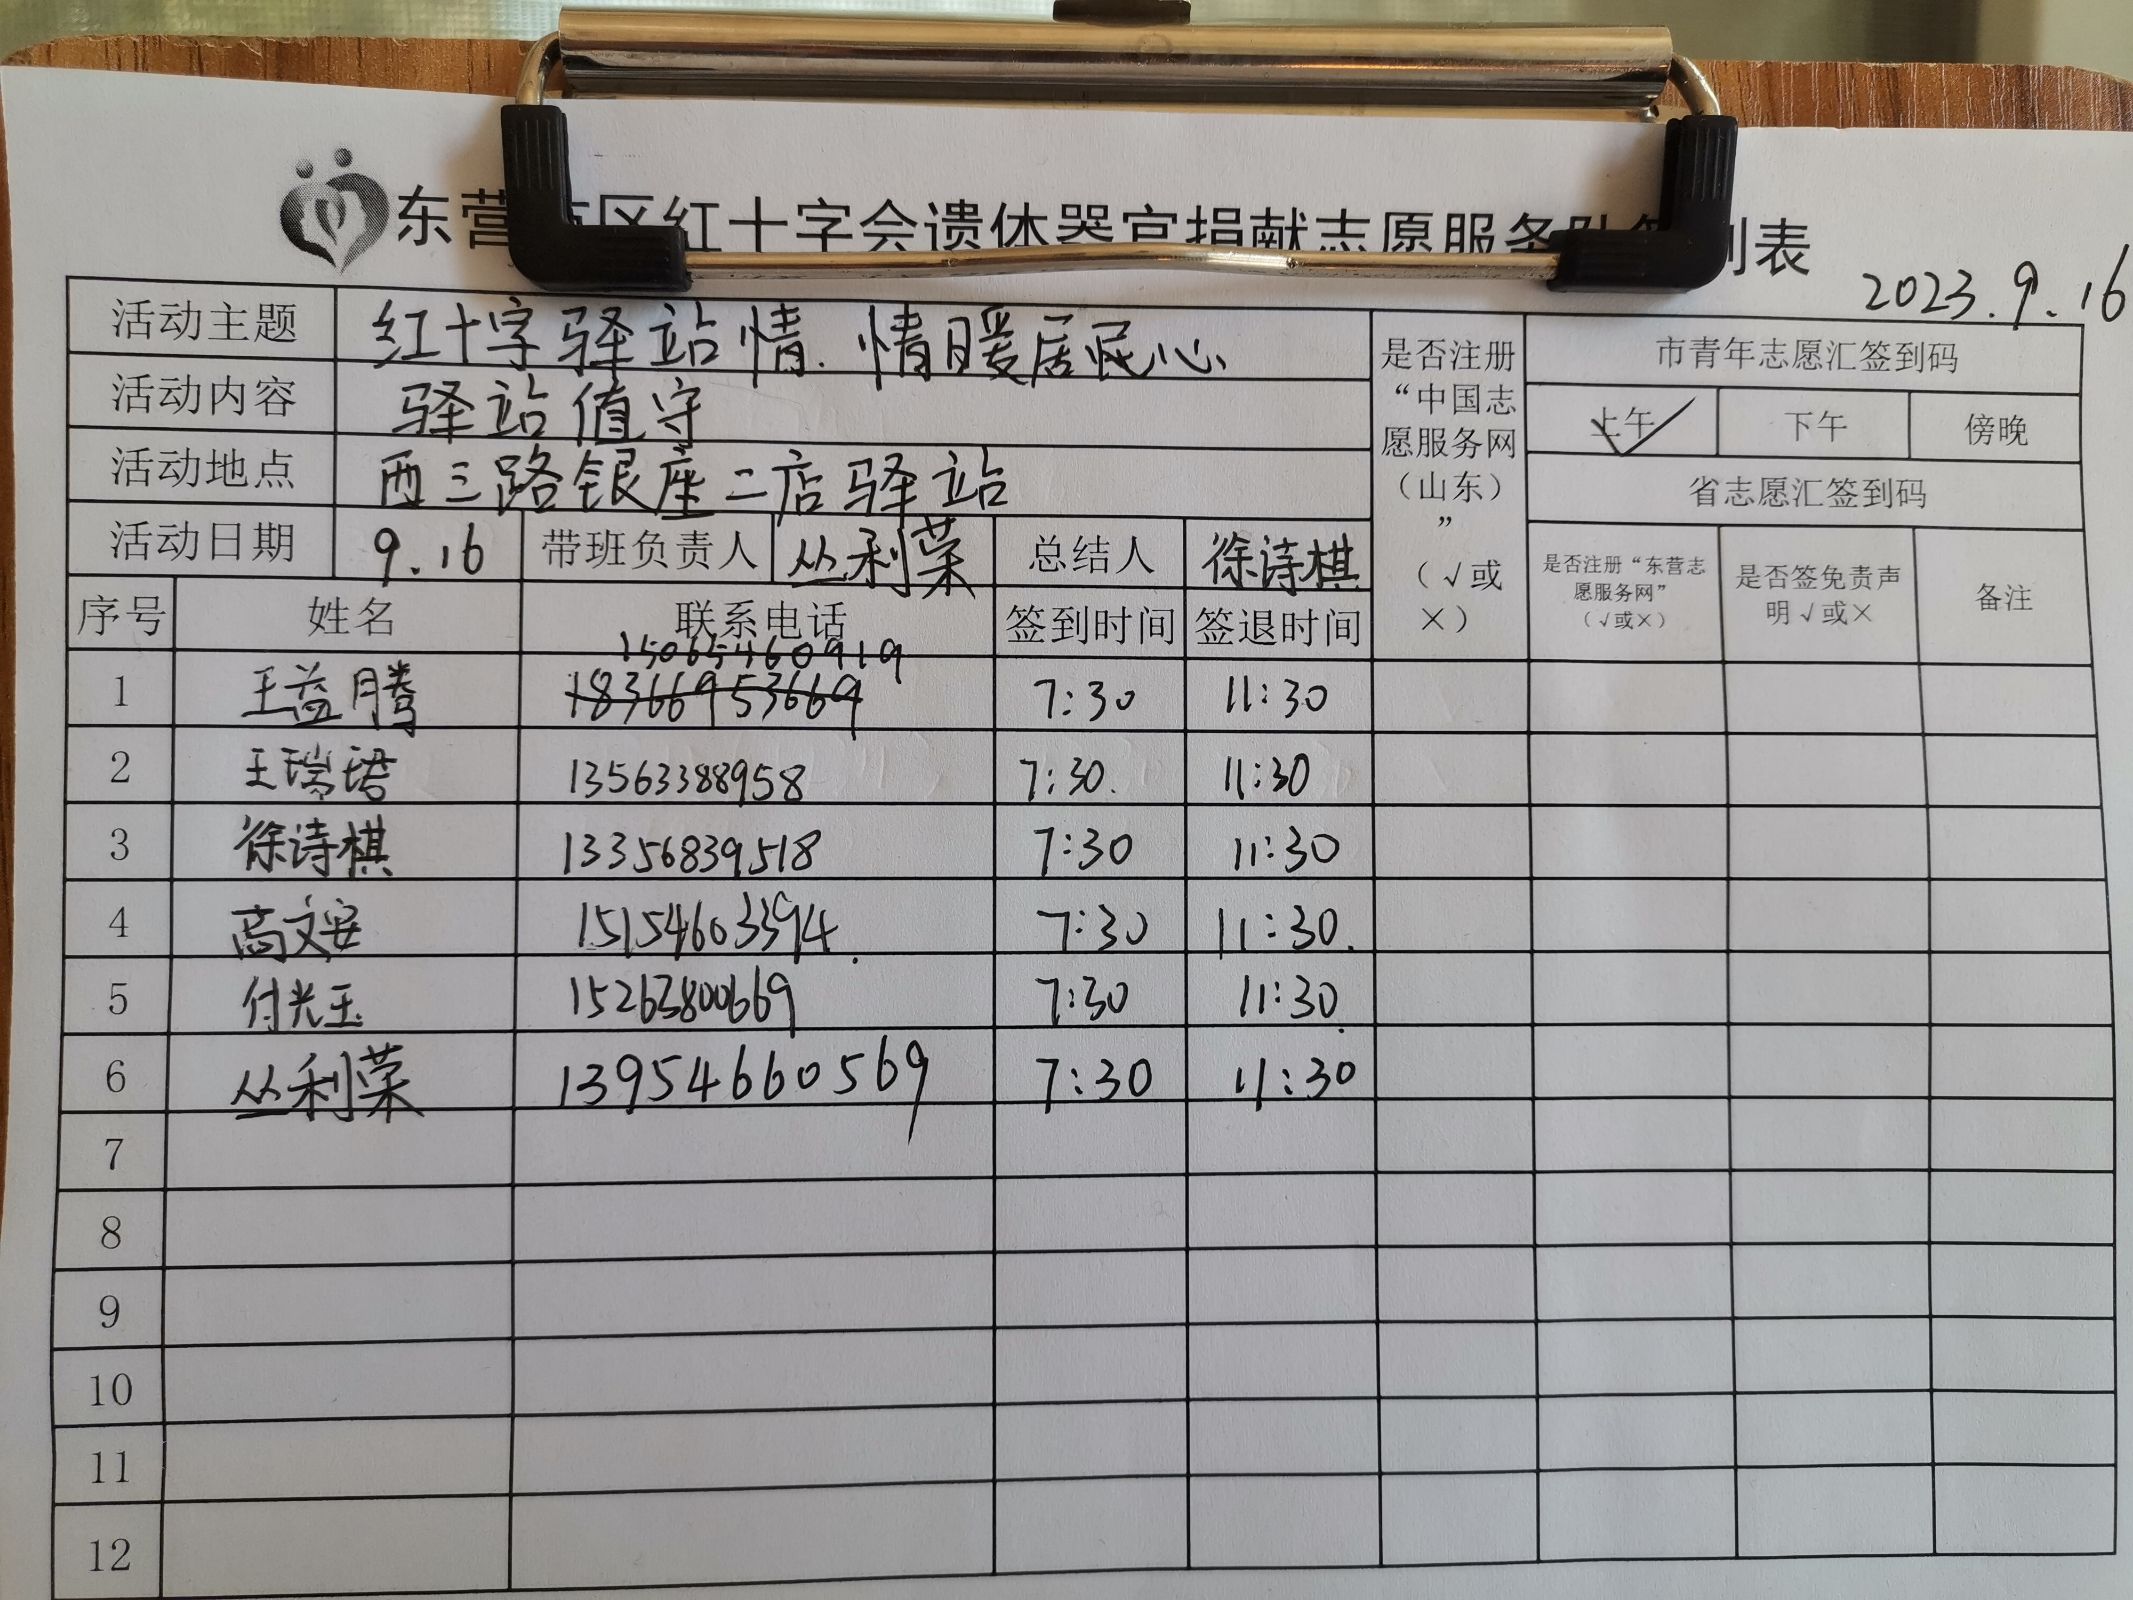 东营市区红十字会遗体器官捐献志愿服务队签到表
2023.9.16
活动主题 红十字驿站情.情暖居民心 是否注册“中国志愿服务网（山东）”（√或×） 市青年志愿汇签到码
活动内容 驿站值守 上午 ✓ 下午 傍晚
活动地点 西三路银座二店驿站 省志愿汇签到码
活动日期 9.16 带班负责人 丛利荣 总结人 徐诗棋 是否注册“东营志愿服务网”（√或×） 是否签免责声明√或× 备注
序号 姓名 联系电话 签到时间 签退时间
15065460919
1 王益腾 18366953669 7:30 11:30
2 王瑞 13563388958 7:30. 11:30
3 徐诗棋 13356839518 7:30 11:30
4 高文安 15154603394. 7:30 11:30.
5 付光玉 15263800669 7:30 11:30.
6 丛利荣 13954660569 7:30 11:30
7
8
9
10
11
12